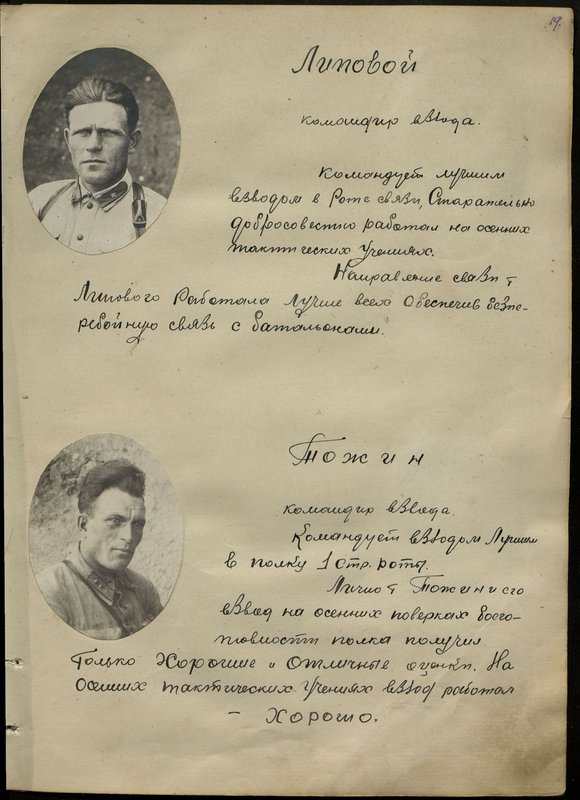 19.
Липовой
командир взвода.
Командует лучшим
взводом в Роте связи, Старательно
добросовестно работал на осенних
тактических учениях.
Направление связи т
Липового Работала лучше всех обеспечив безпе-
ребойную связь с батальонами.
Тожин
командир взвода.
Командует взводом Лучшим
в полку 1 стр. роты.
Лично т Тожин и его
взвод на осенних поверках боего-
товности полка получил
Только Хорошие и Отличные оценки. На
Осенних тактических Учениях взвод работал
– Хорошо.